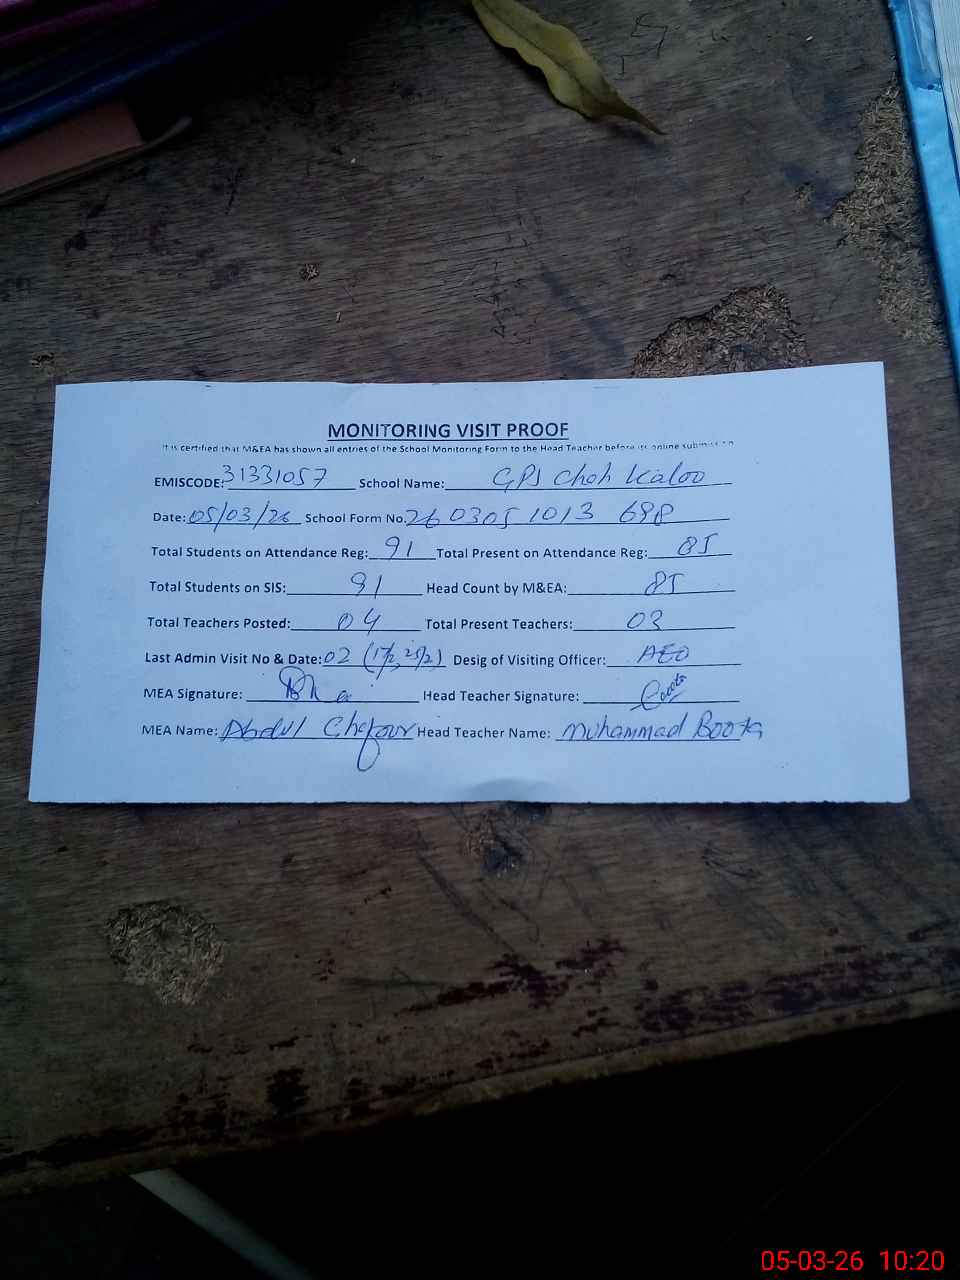 MONITORING VISIT PROOF
It is certified that M&EA has shown all entries of the School Monitoring Form to the Head Teacher before its online submission
EMISCODE: 31331057 School Name: GPS Choh Kaloo
Date: 05/03/26 School Form No. 26 0305 1013 698
Total Students on Attendance Reg: 91 Total Present on Attendance Reg: 85
Total Students on SIS: 91 Head Count by M&EA: 85
Total Teachers Posted: 04 Total Present Teachers: 03
Last Admin Visit No & Date: 02 (17/2, 25/2) Desig of Visiting Officer: AEO
MEA Signature: Head Teacher Signature: Boota
MEA Name: Abdul Ghafour Head Teacher Name: Muhammad Boota
05-03-26 10:20